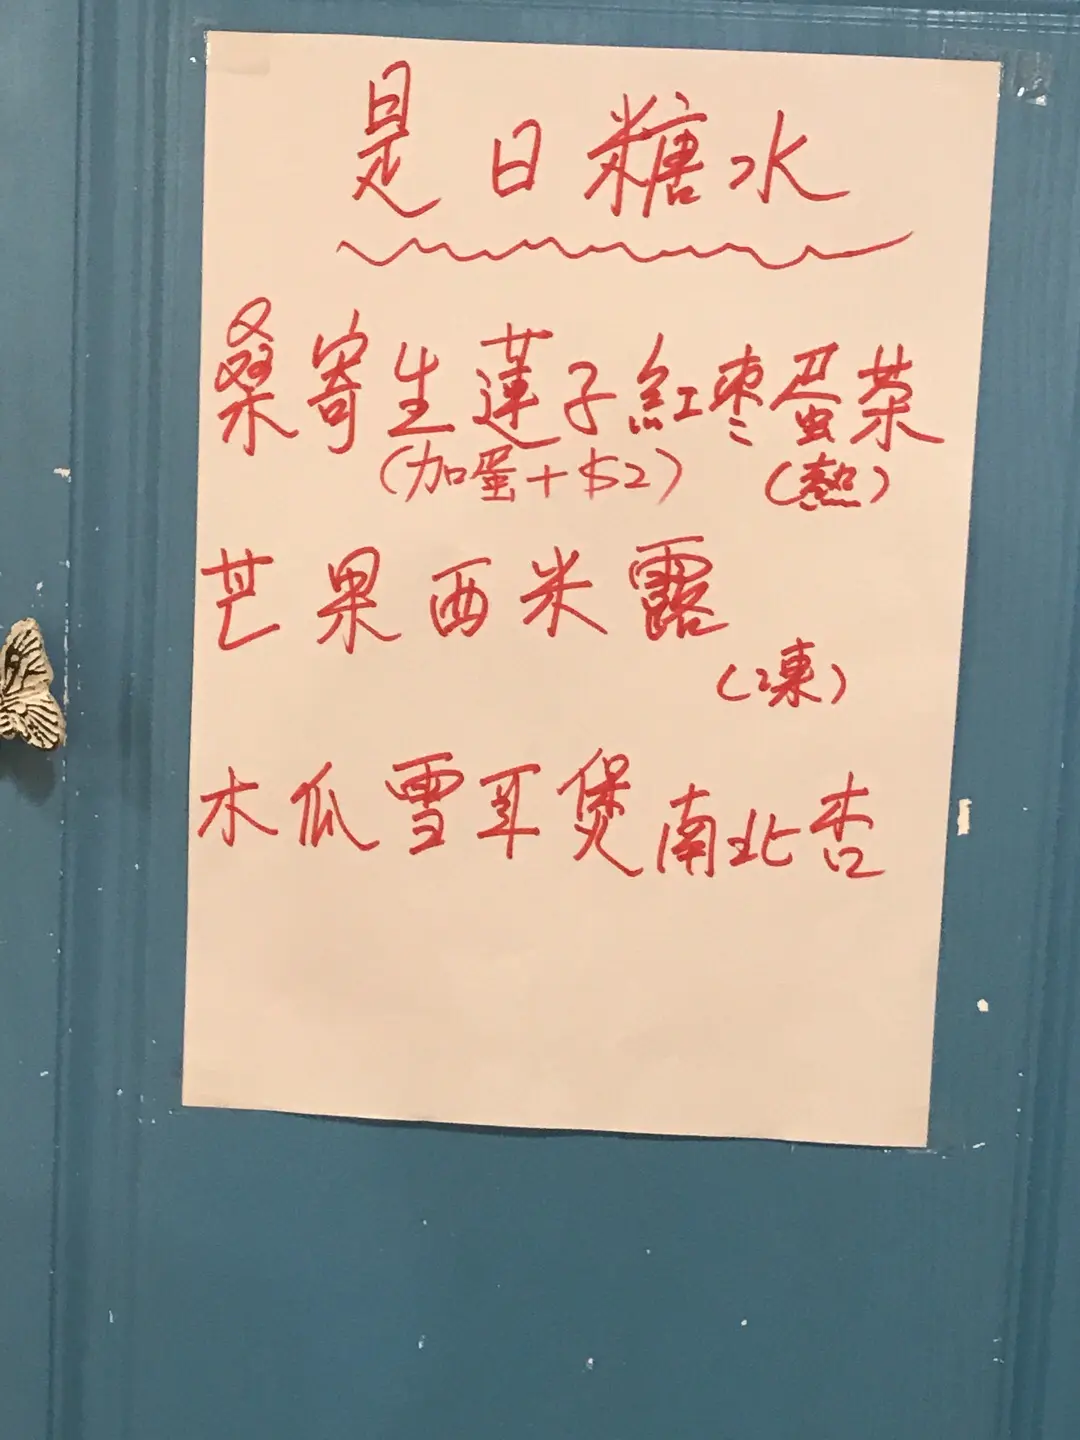 是日糖水
桑寄生蓮子紅枣蛋茶
(加蛋+$2) (熱)
芒果西米露
(凍)
木瓜雪耳煲南北杏